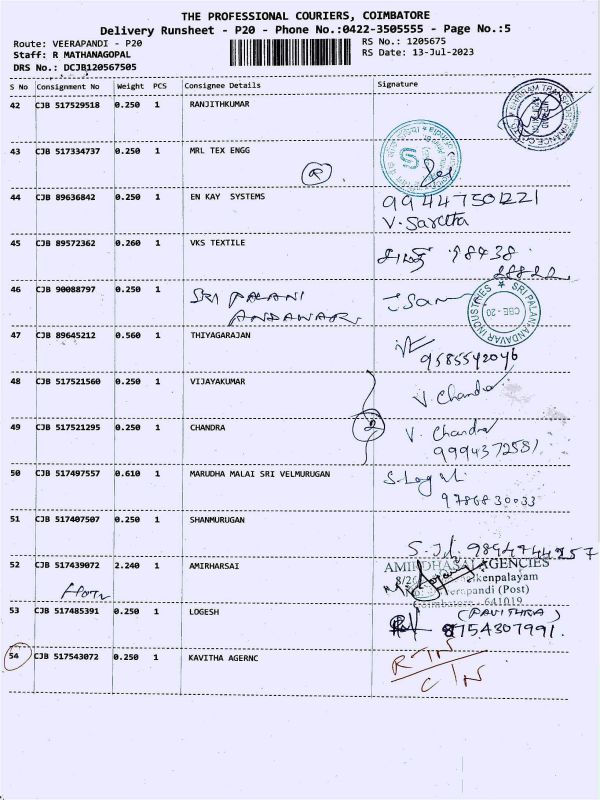 THE PROFESSIONAL COURIERS, COIMBATORE
Delivery Runsheet - P20 - Phone No.:0422-3505555 - Page No.:5
Route: VEERAPANDI - P20 RS No.: 1205675
Staff: R MATHANAGOPAL RS Date: 13-Jul-2023
DRS No.: DCJB120567505
S No Consignment No Weight PCS Consignee Details Signature
42 CJB 517529518 0.250 1 RANJITHKUMAR
43 CJB 517334737 0.250 1 MRL TEX ENGG
R
44 CJB 89636842 0.250 1 EN KAY SYSTEMS 99447501221
V. Saretha
45 CJB 89572362 0.260 1 VKS TEXTILE 98438
46 CJB 90088797 0.250 1 SRI PALANI
ANDAWAR
SRI PALANI ANDAVAR INDUSTRIES CBE - 20
47 CJB 89645212 0.560 1 THIYAGARAJAN
9585542046
48 CJB 517521560 0.250 1 VIJAYAKUMAR V. Chandra
49 CJB 517521295 0.250 1 CHANDRA 2 V. Chandra
9994372581
50 CJB 517497557 0.610 1 MARUDHA MALAI SRI VELMURUGAN
9786830033
51 CJB 517407507 0.250 1 SHANMURUGAN
9894744257
52 CJB 517439072 2.240 1 AMIRHARSAI AGENCIES
(Post)
641019
53 CJB 517485391 0.250 1 LOGESH (PAVITHRA)
8754307991.
54 CJB 517543072 0.250 1 KAVITHA AGERNC RTN
C/N